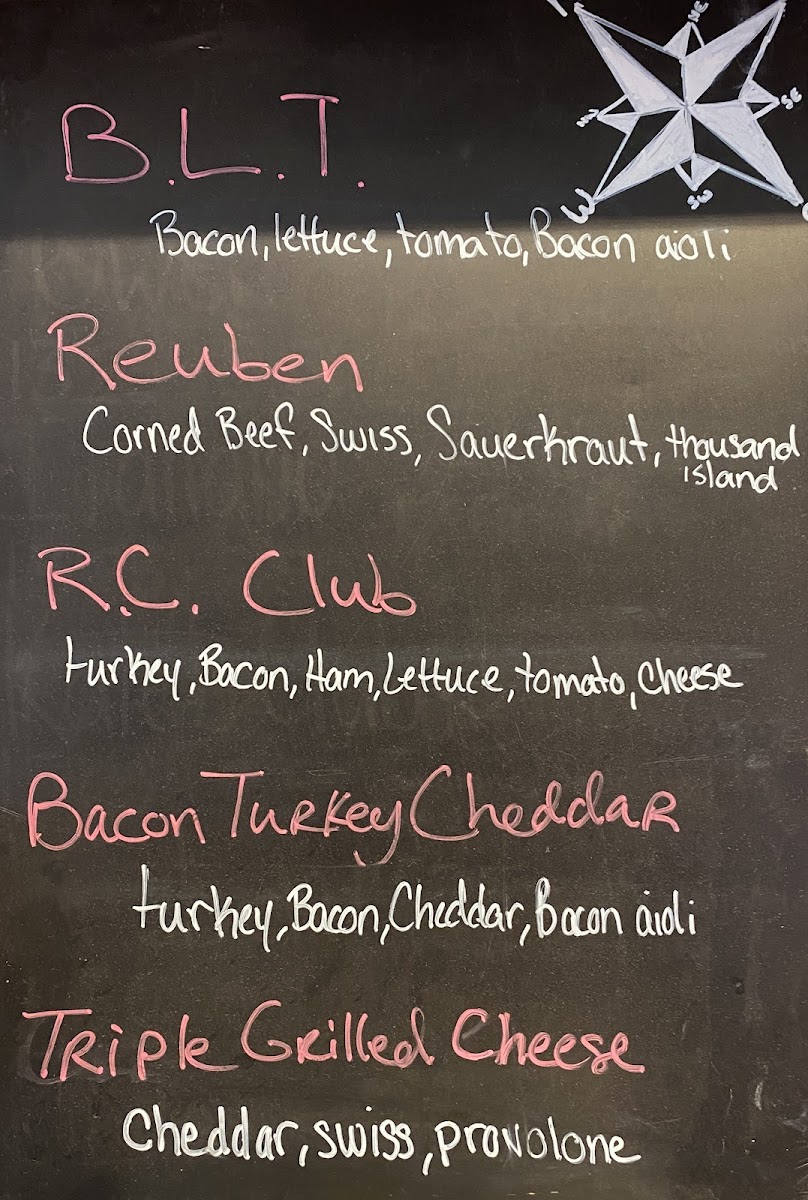 NE
SE
NW
SW
W
B.L.T.
Bacon, lettuce, tomato, Bacon aioli
Reuben
Corned Beef, Swiss, Sauerkraut, thousand
island
R.C. Club
turkey, Bacon, Ham, Lettuce, tomato, Cheese
Bacon Turkey Cheddar
turkey, Bacon, Cheddar, Bacon aioli
Triple Grilled Cheese
Cheddar, swiss, provolone